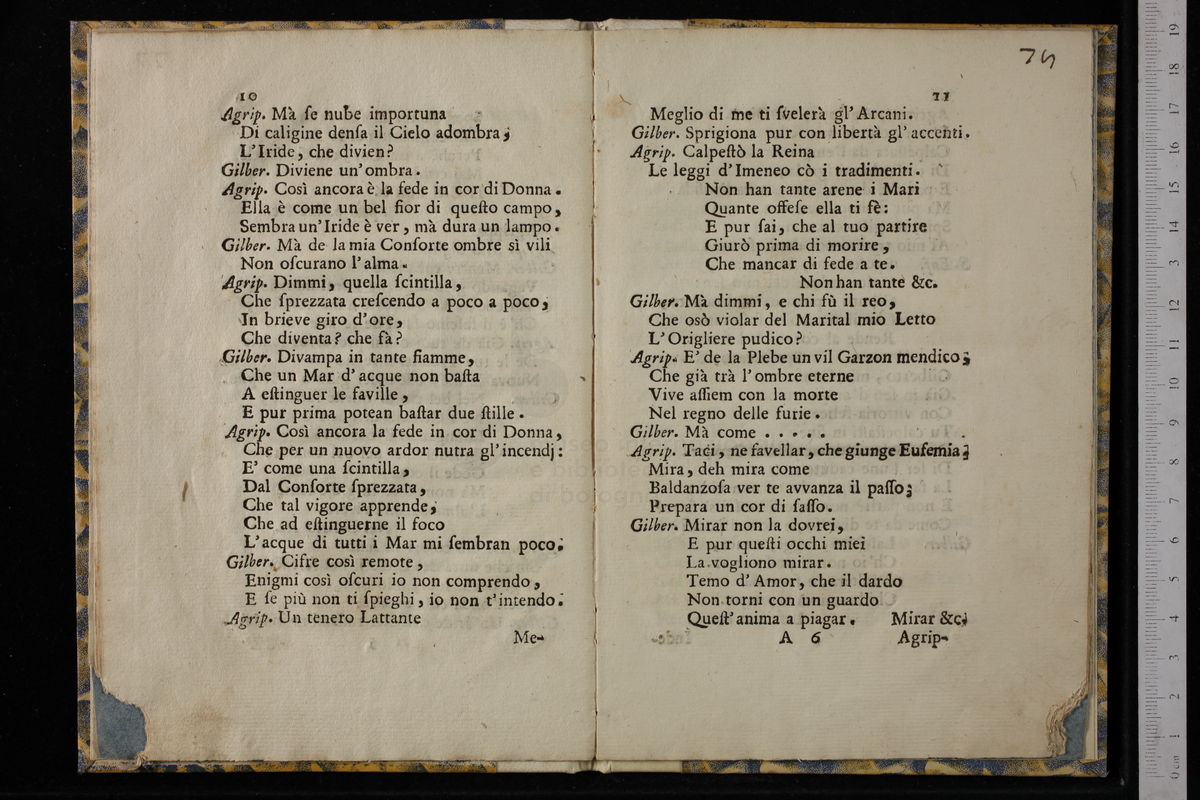 10
Agrip. Mà ſe nube importuna
Di caligine denſa il Cielo adombra;
L'Iride, che divien?
Gilber. Diviene un'ombra.
Agrip. Così ancora è la fede in cor di Donna.
Ella è come un bel fior di queſto campo,
Sembra un'Iride è ver, mà dura un lampo.
Gilber. Mà de la mia Conſorte ombre sì vili
Non oſcurano l'alma.
Agrip. Dimmi, quella ſcintilla,
Che ſprezzata creſcendo a poco a poco,
In brieve giro d'ore,
Che diventa? che fà?
Gilber. Divampa in tante fiamme,
Che un Mar d'acque non baſta
A eſtinguer le faville,
E pur prima potean baſtar due ſtille.
Agrip. Così ancora la fede in cor di Donna,
Che per un nuovo ardor nutra gl'incendj:
E' come una ſcintilla,
Dal Conſorte ſprezzata,
Che tal vigore apprende;
Che ad eſtinguerne il foco
L'acque di tutti i Mar mi ſembran poco.
Gilber. Cifre così remote,
Enigmi così oſcuri io non comprendo,
E ſe più non ti ſpieghi, io non t'intendo.
Agrip. Un tenero Lattante
Me-
75
11
Meglio di me ti ſvelerà gl'Arcani.
Gilber. Sprigiona pur con libertà gl'accenti.
Agrip. Calpeſtò la Reina
Le leggi d'Imeneo cò i tradimenti.
Non han tante arene i Mari
Quante offeſe ella ti fè:
E pur ſai, che al tuo partire
Giurò prima di morire,
Che mancar di fede a te.
Non han tante &c.
Gilber. Mà dimmi, e chi fù il reo,
Che osò violar del Marital mio Letto
L'Origliere pudico?
Agrip. E' de la Plebe un vil Garzon mendico;
Che già trà l'ombre eterne
Vive aſſiem con la morte
Nel regno delle furie.
Gilber. Mà come . . . . .
Agrip. Taci, ne favellar, che giunge Eufemia;
Mira, deh mira come
Baldanzoſa ver te avvanza il paſſo;
Prepara un cor di ſaſſo.
Gilber. Mirar non la dovrei,
E pur queſti occhi miei
La vogliono mirar.
Temo d'Amor, che il dardo
Non torni con un guardo
Queſt'anima a piagar. Mirar &c.
A 6 Agrip-